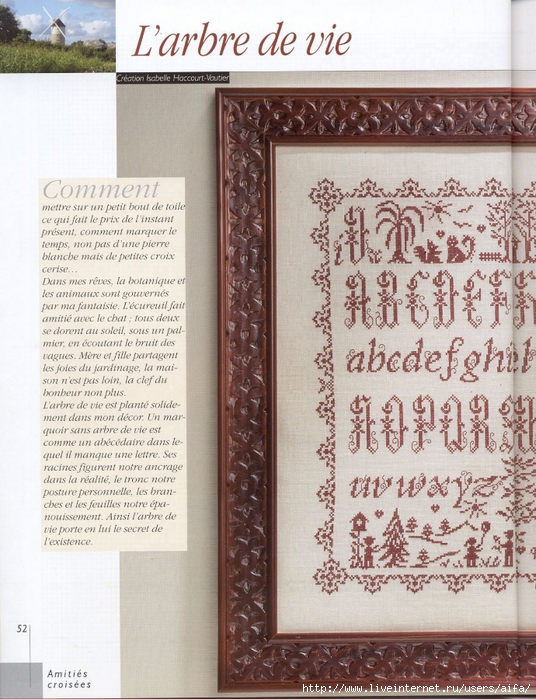 L'arbre de vie
Création Isabelle Haccourt-Vautier
Comment
mettre sur un petit bout de toile
ce qui fait le prix de l'instant
présent, comment marquer le
temps, non pas d'une pierre
blanche mais de petites croix
cerise...
Dans mes rêves, la botanique et
les animaux sont gouvernés
par ma fantaisie. L'écureuil fait
amitié avec le chat ; tous deux
se dorent au soleil, sous un pal-
mier, en écoutant le bruit des
vagues. Mère et fille partagent
les joies du jardinage, la mai-
son n'est pas loin, la clef du
bonheur non plus.
L'arbre de vie est planté solide-
ment dans mon décor. Un mar-
quoir sans arbre de vie est
comme un abécédaire dans le-
quel il manque une lettre. Ses
racines figurent notre ancrage
dans la réalité, le tronc notre
posture personnelle, les bran-
ches et les feuilles notre épa-
nouissement. Ainsi l'arbre de
vie porte en lui le secret de
l'existence.
A B C D E F
a b c d e f g h i
N O P Q R
u v w x y z
52
Amitiés
croisées
http://www.liveinternet.ru/users/aifa/